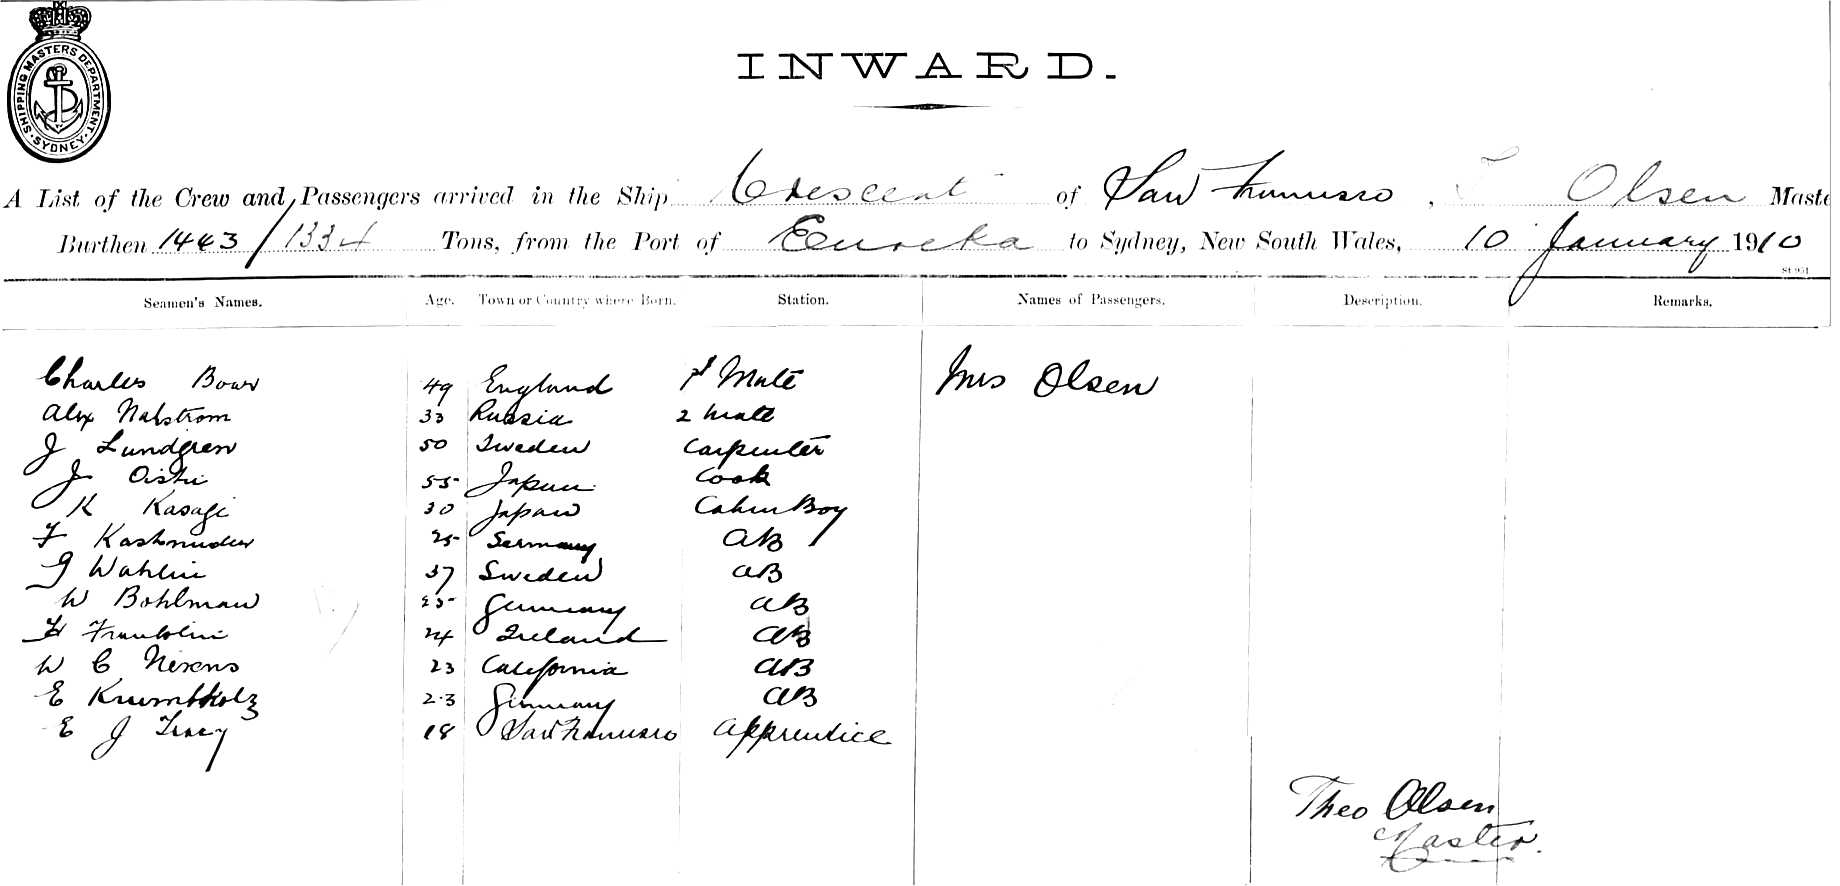 SHIPPING MASTERS DEPARTMENT · SYDNEY ·
INWARD.
A List of the Crew and Passengers arrived in the Ship Crescent of San Francisco, T Olsen Maste
Burthen 1443/1334 Tons, from the Port of Eureka to Sydney, New South Wales, 10 January 1910
Seamen's Names. Age. Town or Country where Born. Station. Names of Passengers. Description. Remarks.
Charles 49 England 1st Mate Mrs Olsen
Alex 33 Russia 2 Mate
J Lundgren 50 Sweden Carpenter
J 55 Japan Cook
K Kasagi 30 Japan Cabin Boy
F 25 Germany AB
J Wahlin 37 Sweden AB
W Bohlman 25 Germany AB
H Franklin 24 Ireland AB
W C 23 California AB
E Krumbholz 23 Germany AB
E J Tracy 18 San Francisco Apprentice
Theo Olsen
Master.